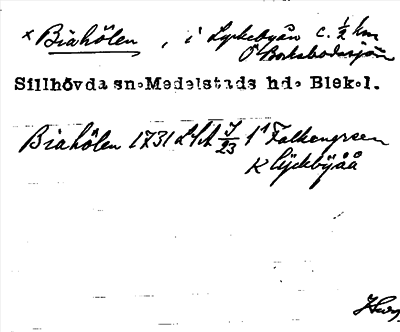 × Biahölen, i Lyckebyån c. ½ km
Ö Boksbodasjön
Sillhövda sn. Medelstads hd. Blek.l.
Biahölen 1731 LSA 7/23 1¹ Falkengreen
K Lyckebyåå